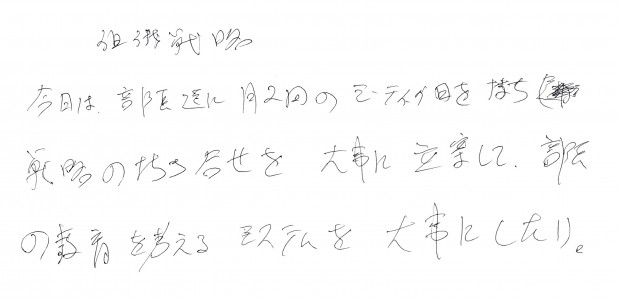 組織戦略
今日は、部長達に月2回のミーティング日を持ち
戦略の打ち合せを 大事に 立案して、部長
の教育を考える システムを 大事にしたい。